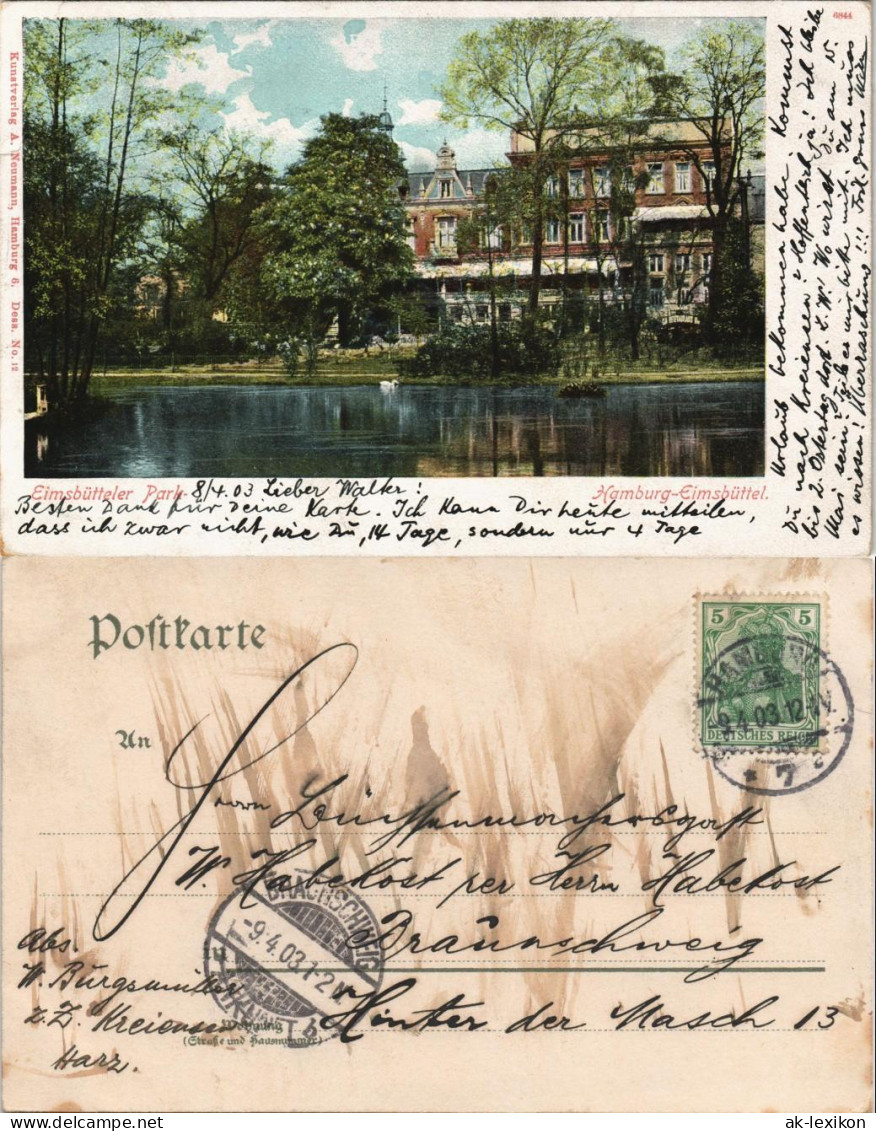 6844
Kunstverlag A. Neumann, Hamburg 6. Dess. No. 12
Eimsbütteler Park.
Hamburg-Eimsbüttel.
8/4.03 Lieber Walter!
Besten Dank für Deine Karte. Ich kann Dir heute mitteilen,
dass ich zwar nicht, wie Du, 14 Tage, sondern nur 4 Tage
Urlaub bekommen habe. Kommst
Du nach Kreiensen? Hoffentlich ja! Ich bleibe
bis 2. Ostertag dort. Wo wirst Du am 15.
Mai sein? Ich muss
es wissen! Überraschung!!!
Postkarte
An
5
DEUTSCHES REICH
9.4.03 12-1N
* 7
Herrn Büchsenmachersgast
W. Habekost per Herrn Habekost
BRAUNSCHWEIG
-9.4.03.1-2N
Braunschweig
Abs.
W. Burgsmüller
z.Z. Kreiensen
Harz.
Hinter der Masch 13
Wohnung
(Straße und Hausnummer)
ak-lexikon